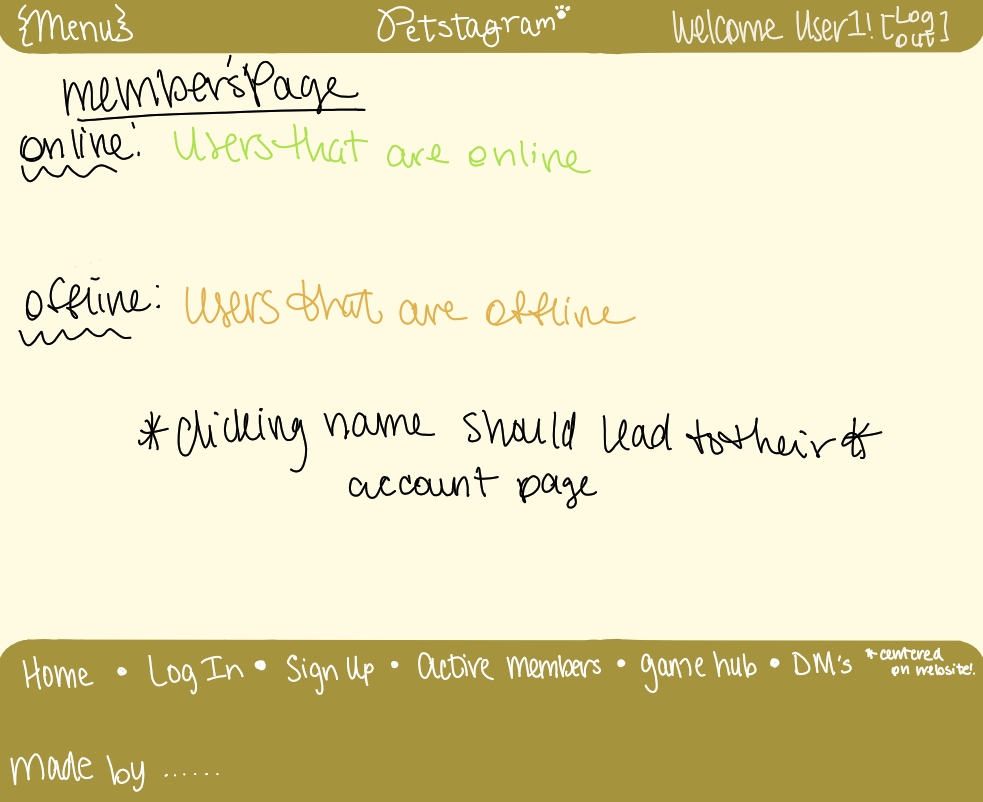 {Menu} Petstagram Welcome User1! [Log out]
member's Page
online: Users that are online
offline: Users that are offline
*clicking name should lead to their*
account page
Home • Log In • Sign Up • Active members • game hub • DM's *centered on website!
Made by ......